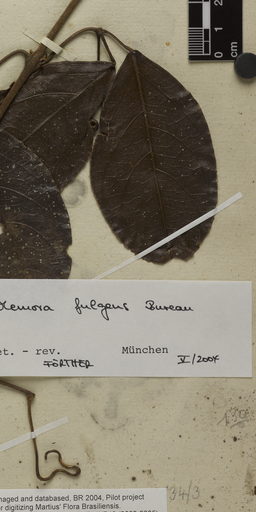 0 1 2
cm
Memora fulgens Bureau
et. - rev. München
FÖRTHER V/2004
maged and databased, BR 2004, Pilot project
r digitizing Martius' Flora Brasiliensis.
34/3